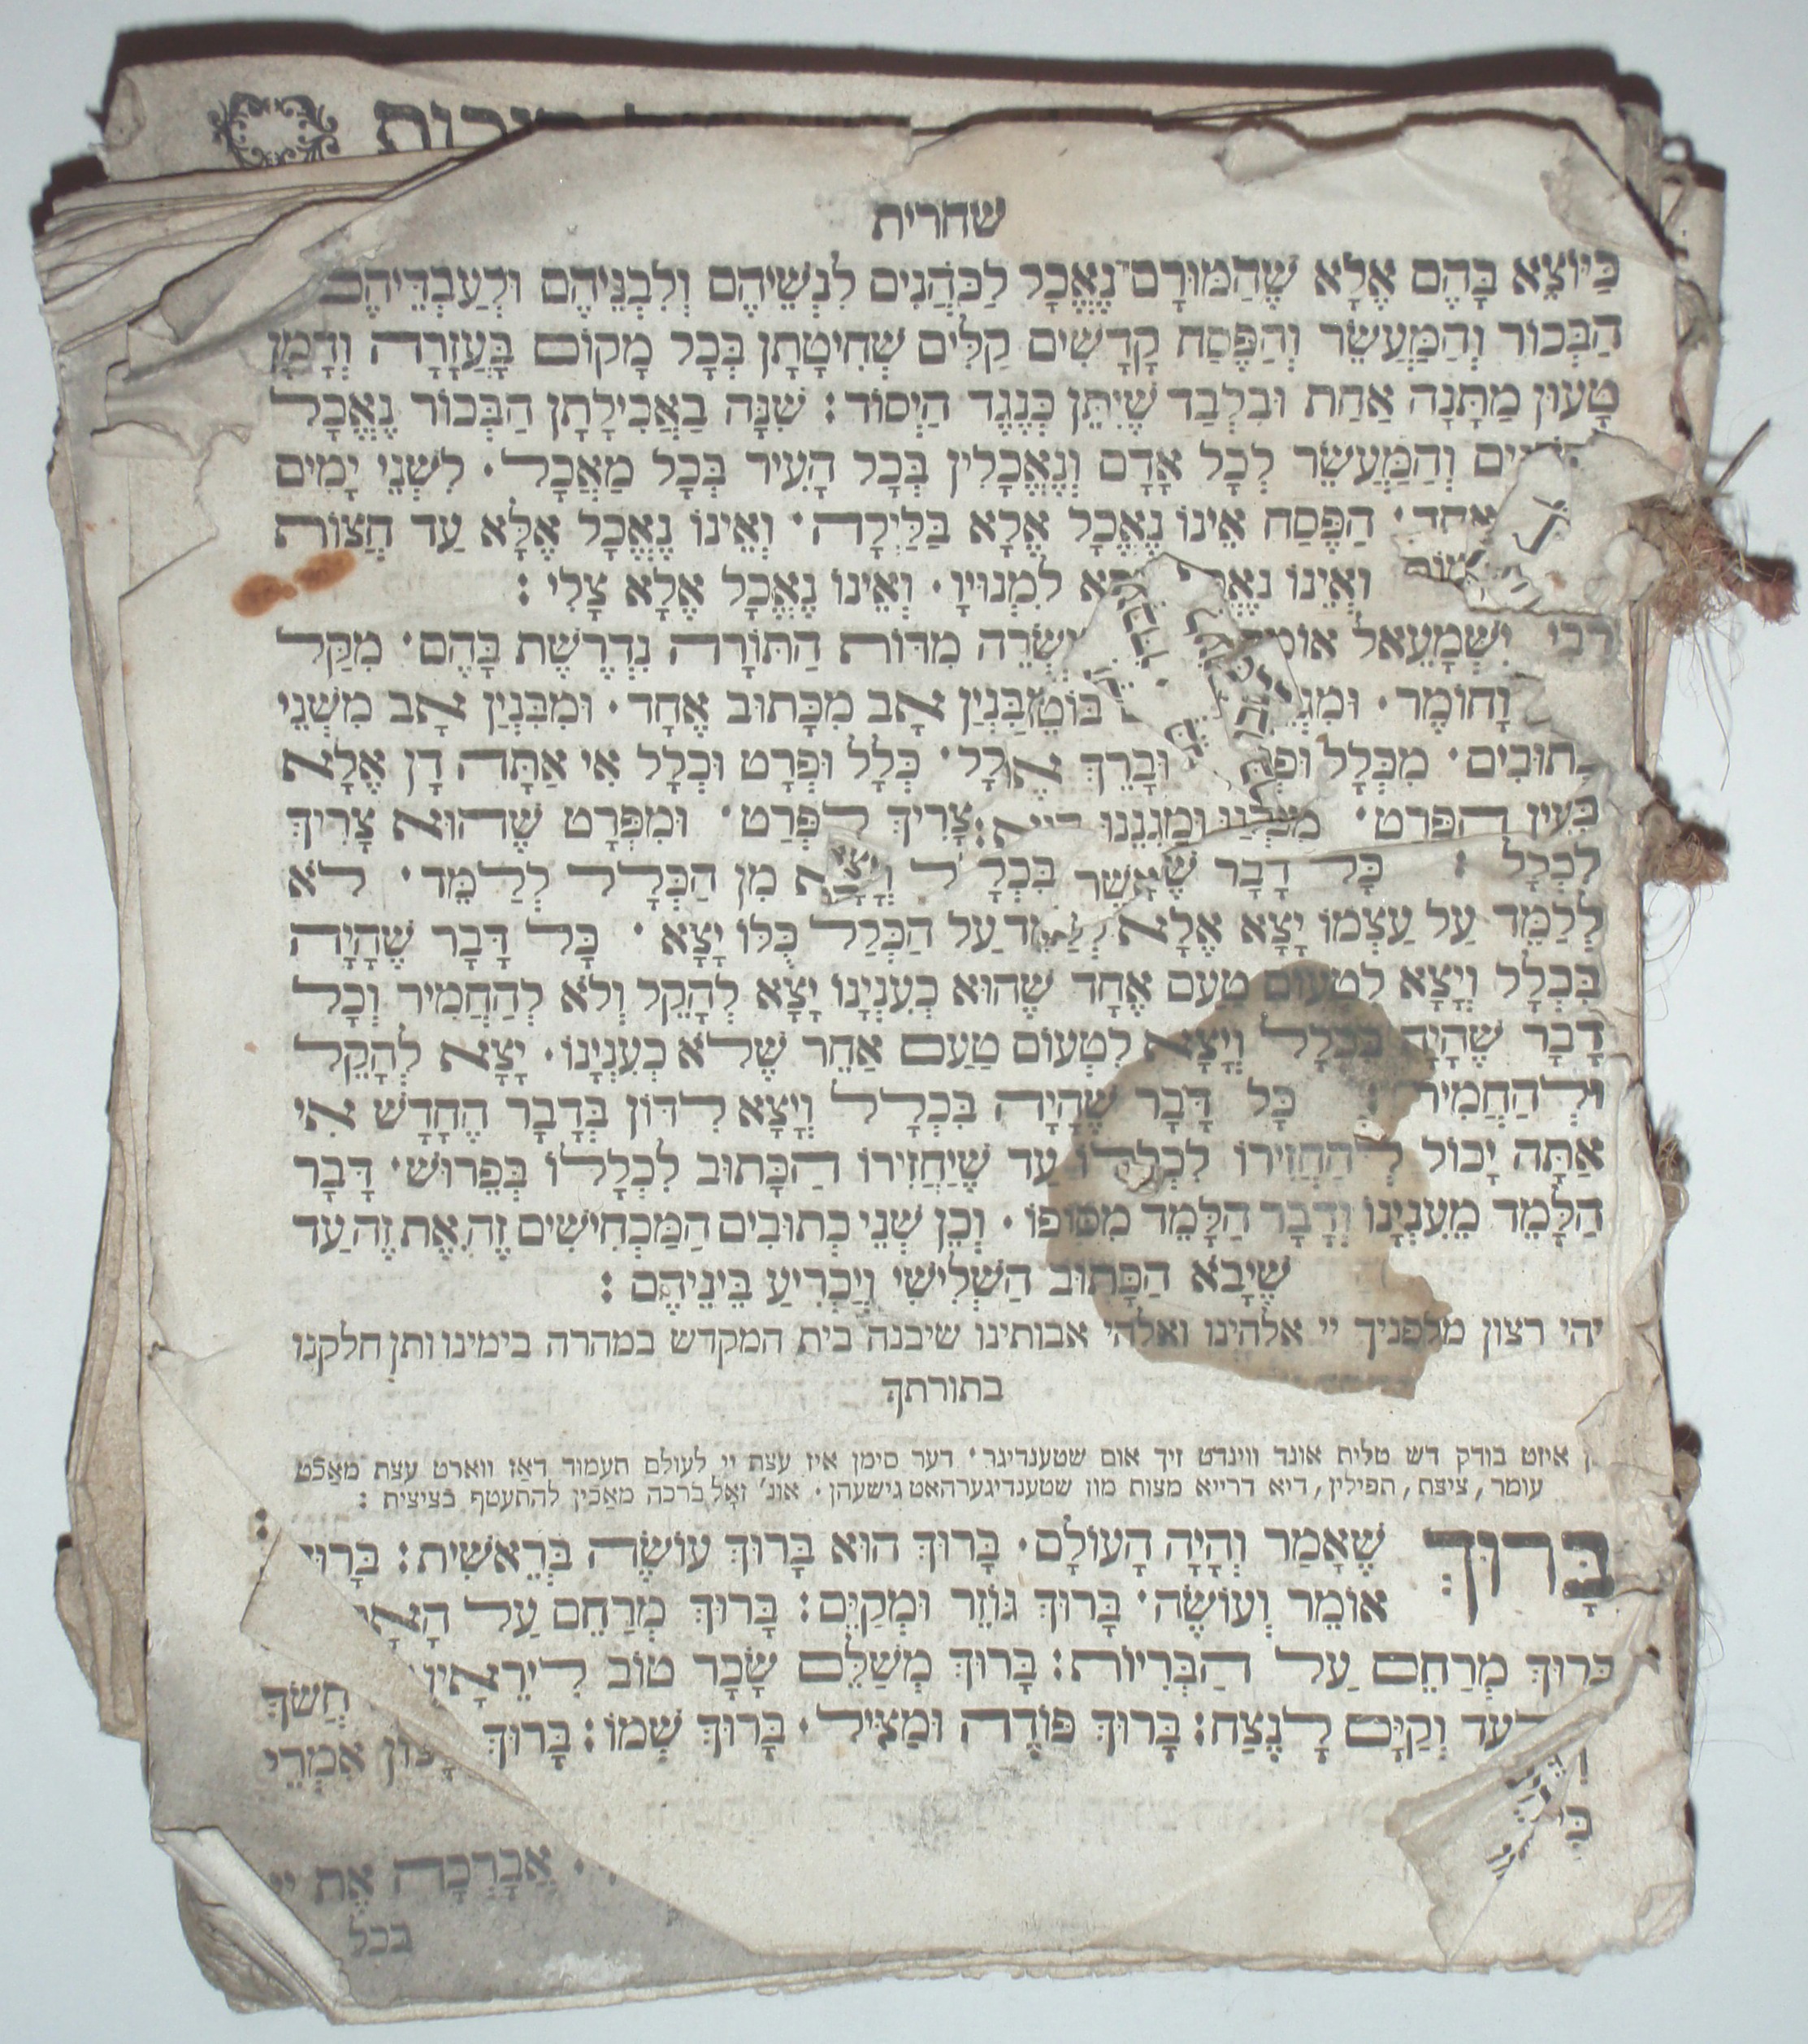 שחרית
כַּיּוֹצֵא בָּהֶם אֶלָּא שֶׁהַמּוּרָם־נֶאֱכָל לַכֹּהֲנִים לִנְשֵׁיהֶם וְלִבְנֵיהֶם וּלְעַבְדֵיהֶם
הַבְּכוֹר וְהַמַּעֲשֵׂר וְהַפֶּסַח קָדָשִׁים קַלִּים שְׁחִיטָתָן בְּכָל מָקוֹם בָּעֲזָרָה וְדָמָן
טָעוּן מַתָּנָה אַחַת וּבִלְבַד שֶׁיִּתֵּן כְּנֶגֶד הַיְסוֹד: שִׁנָּה בַאֲכִילָתָן הַבְּכוֹר נֶאֱכָל
וְהַמַּעֲשֵׂר לְכָל אָדָם וְנֶאֱכָלִין בְּכָל הָעִיר בְּכָל מַאֲכָל· לִשְׁנֵי יָמִים
אחד· הַפֶּסַח אֵינוֹ נֶאֱכָל אֶלָּא בַלַּיְלָה· וְאֵינוֹ נֶאֱכָל אֶלָּא עַד חֲצוֹת
וְאֵינוֹ לִמְנוּיָו· וְאֵינוֹ נֶאֱכָל אֶלָּא צָלִי:
רבי יִשְׁמָעֵאל עֶשְׂרֵה מִדּוֹת הַתּוֹרָה נִדְרֶשֶׁת בָּהֶם· מִקַּל
וָחוֹמֶר· אָב מִכָּתוּב אֶחָד· וּמִבִּנְיַן אָב מִשְּׁנֵי
מִכְּלָל כְּלָל וּפְרָט וּכְלָל אִי אַתָּה דָן אֶלָּא
כְּעֵין הַפְּרָט· צָרִיךְ הַפְּרַט· וּמִפְּרָט שֶׁהוּא צָרִיךְ
לִכְלָל: כָּל דָבָר מִן הַכְּלָל לְלַמֵּד· לֹא
לְלַמֵּד עַל עַצְמוֹ יָצָא אֶלָּא עַל הַכְּלַל כֻּלּוֹ יָצָא· כָּל דָּבָר שֶׁהָיָה
בִּכְלָל וְיָצָא לִטְעוֹם טַעַם אֶחָד שֶׁהוּא כְעִנְיָנוֹ יָצָא לְהָקֵל וְלֹא לְהַחֲמִיר וְכָל
דָבָר שֶׁהָיָה בִּכְלָל וְיָצָא לִטְעוֹם טַעַם אַחֵר שֶׁלֹּא כְעִנְיָנוֹ· יָצָא לְהָקֵל
וּלְהַחֲמִיר: כָּל דָּבָר שֶׁהָיָה בִּכְלָל וְיָצָא לִדּוֹן בְּדָבָר הֶחָדָשׁ אִי
אַתָּה יָכוֹל לְהַחֲזִירוֹ לִכְלָלוֹ עַד שֶׁיַּחֲזִירוֹ הַכָּתוּב לִכְלָלוֹ בְּפֵרוּשׁ· דָּבָר
הַלָּמֵד מֵעִנְיָנוֹ וְדָבָר הַלָּמֵד מִסּוֹפוֹ· וְכֵן שְׁנֵי כְתוּבִים הַמַּכְחִישִׁים זֶה אֶת זֶה עַד
שֶׁיָּבֹא הַכָּתוּב הַשְּׁלִישִׁי וְיַכְרִיעַ בֵּינֵיהֶם:
יהי רצון מלפניך יי אלהינו ואלהי אבותינו שיבנה בית המקדש במהרה בימינו ותן חלקנו
בתורתך
איזט בודק דש טלית אונד ווינדט זיך אום שטענדיגר· דער סימן איז עצת יי לעולם תעמוד דאַז ווארט עצת מאַכט
עומר, ציצת, תפילין, דיא דרייא מצות מוז שטענדיגערהאט גישעהן· אונ' זאָל ברכה מאַכֿין להתעטף בציצית:
בָּרוּךְ שֶׁאָמַר וְהָיָה הָעוֹלָם· בָּרוּךְ הוּא בָּרוּךְ עוֹשֶׂה בְרֵאשִׁית:
אוֹמֵר וְעוֹשֶׂה· בָּרוּךְ גּוֹזֵר וּמְקַיֵּם: בָּרוּךְ מְרַחֵם עַל
בָּרוּךְ מְרַחֵם עַל הַבְּרִיּוֹת: בָּרוּךְ מְשַׁלֵּם שָׂכָר טוֹב לִירֵאָיו חֲשֹׁךְ
לָעַד וְקַיָּם לָנֶצַח: בָּרוּךְ פּוֹדֶה וּמַצִּיל· בָּרוּךְ שְׁמוֹ: בָּרוּךְ אִמְרֵי
אֲבָרְכָה אֶת יי
בכל